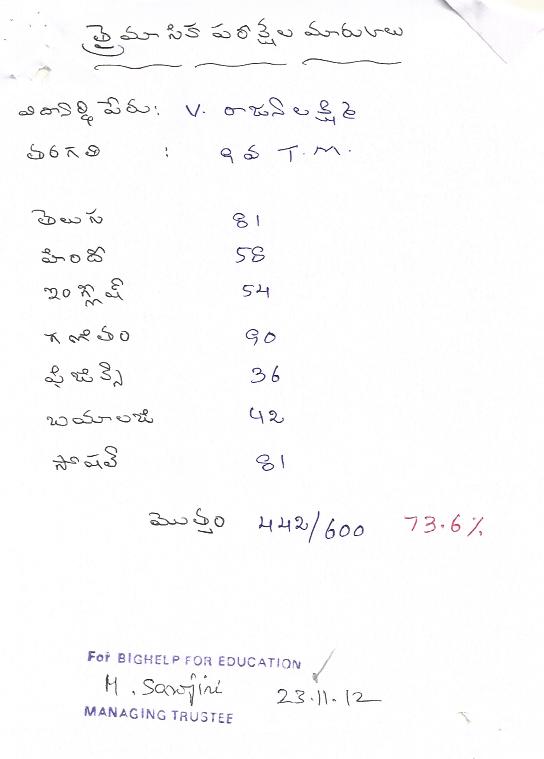 త్రైమాసిక పరీక్షల మార్కులు
విద్యార్థి పేరు: V. రాజశ్రీలక్ష్మి
తరగతి : 9వ T.M.
తెలుగు 81
హిందీ 58
ఇంగ్లీష్ 54
గణితం 90
ఫిజిక్స్ 36
బయాలజి 42
సోషల్ 81
మొత్తం 442/600 73.6%
For BIGHELP FOR EDUCATION
M. Sarojini 23.11.12
MANAGING TRUSTEE